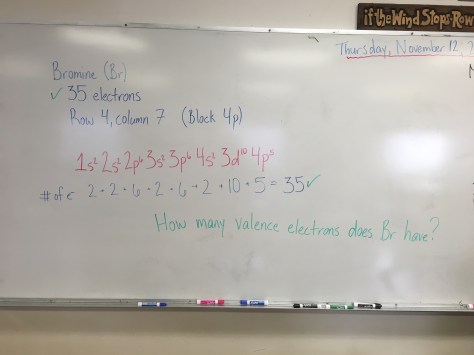 if the Wind Stops Row
Thursday, November 12,
Bromine (Br)
✓ 35 electrons
Row 4, column 7 (Block 4p)
1s² 2s² 2p⁶ 3s² 3p⁶ 4s² 3d¹⁰ 4p⁵
# of e⁻ 2 + 2 + 6 + 2 + 6 + 2 + 10 + 5 = 35 ✓
How many valence electrons does Br have?